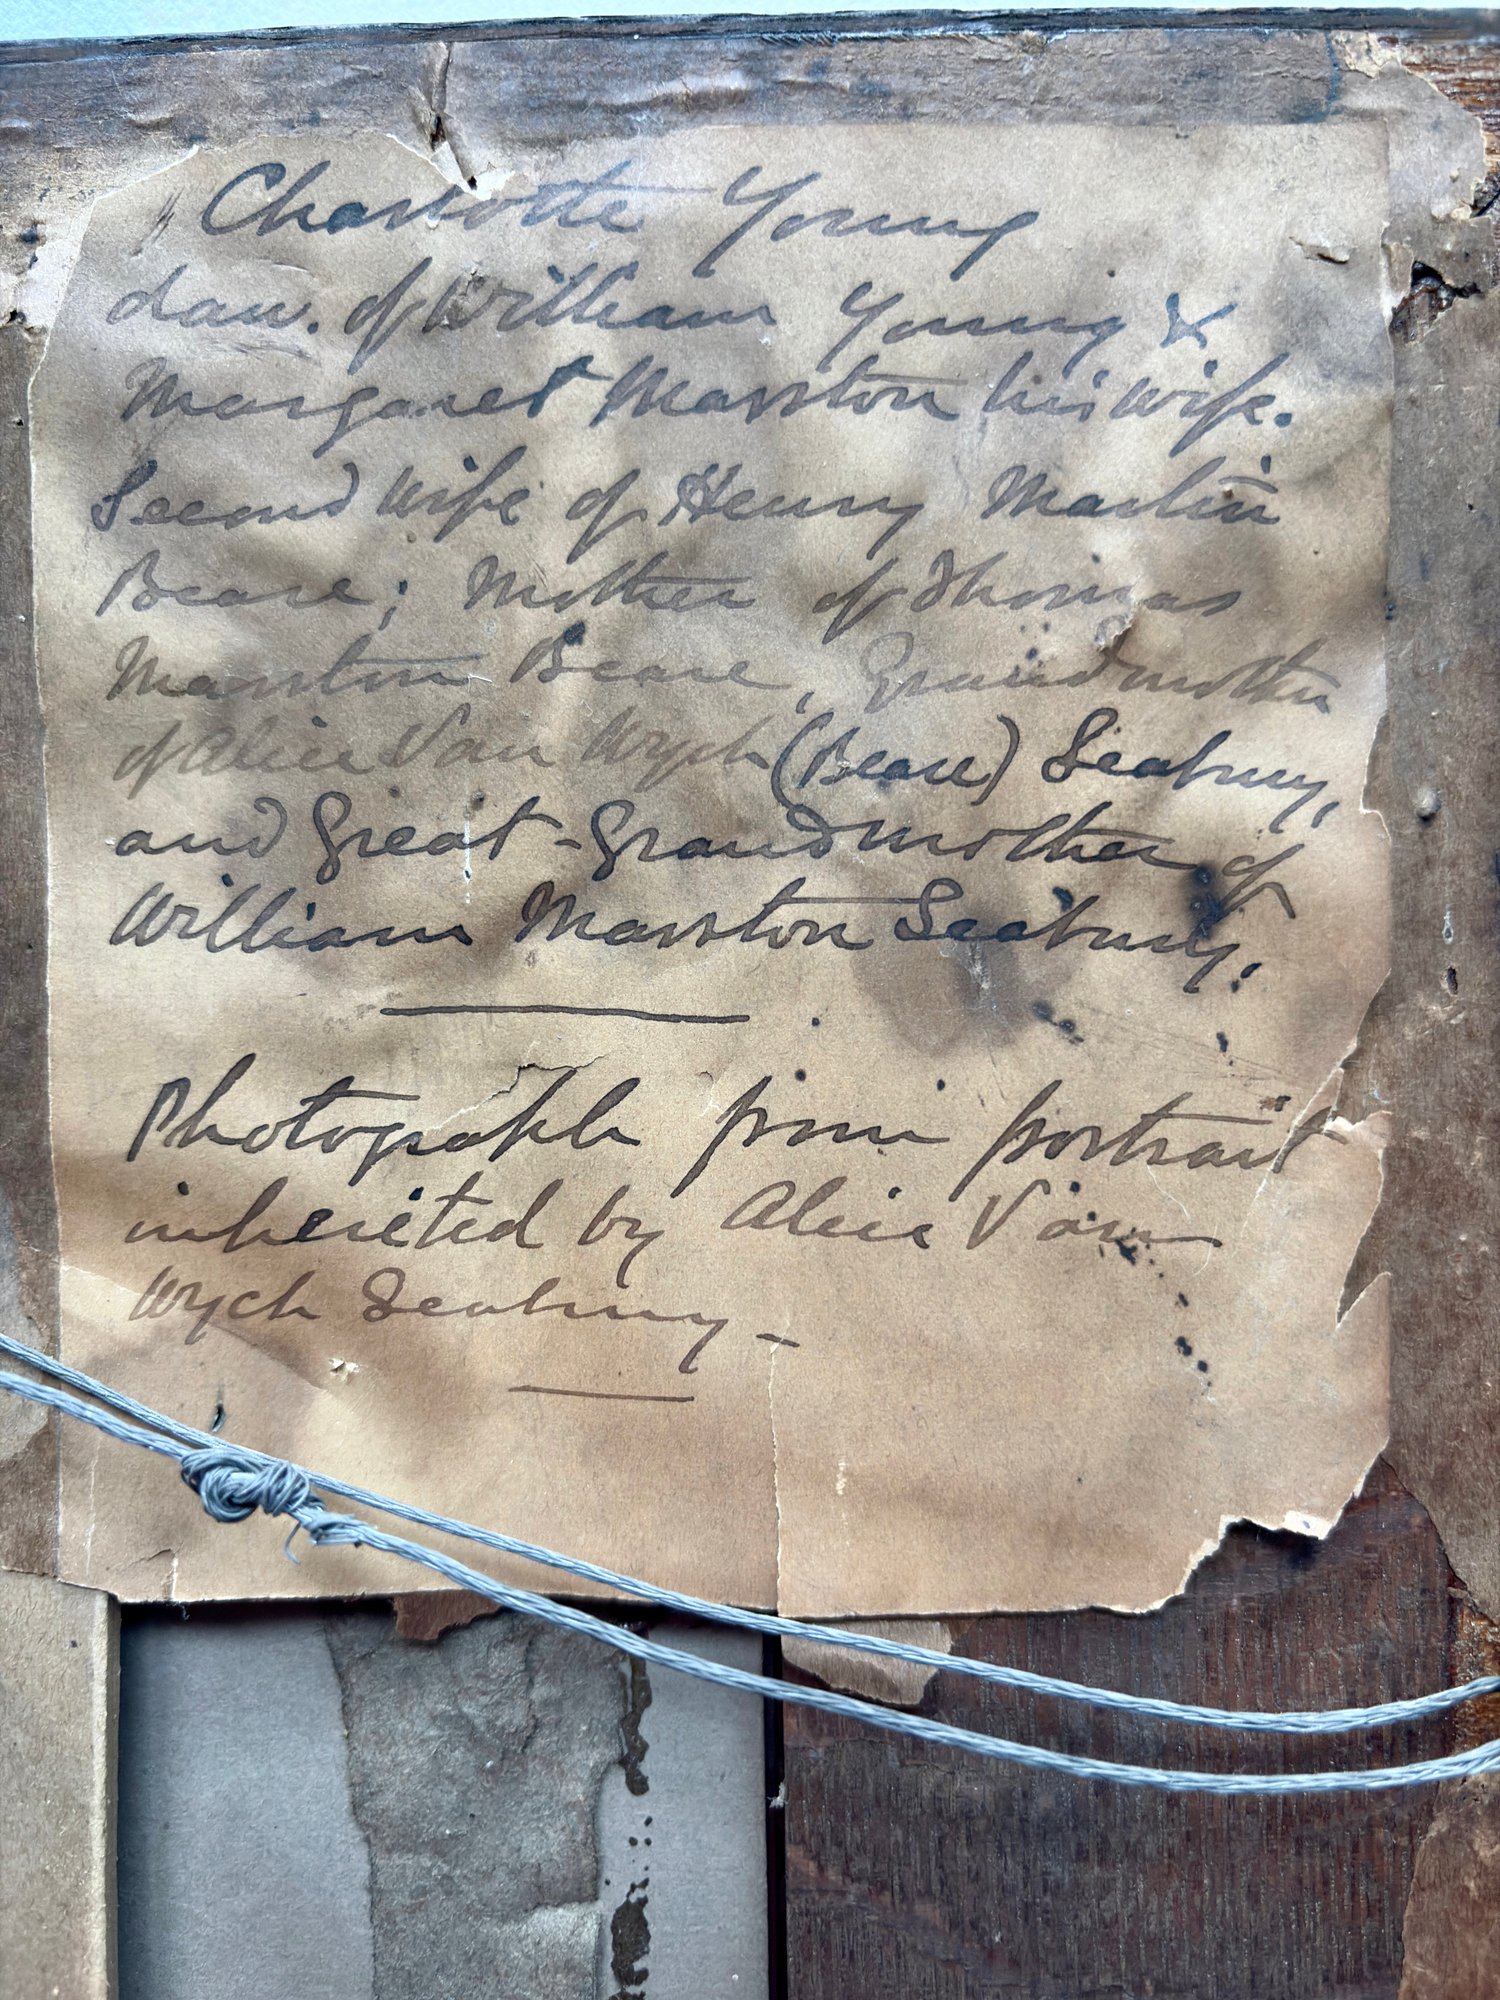 Charlotte Young
dau. of William Young &
Margaret Marston his wife.
Second wife of Henry Martin
Beare; Mother of Thomas
Marston Beare, Grandmother
of Alice Van Wyck (Beare) Seabury,
and Great-Grandmother of
William Marston Seabury.
Photograph from portrait
inherited by Alice Van
Wyck Seabury -